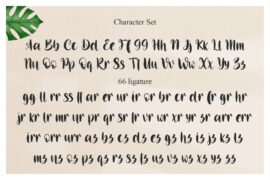 Character Set
Aa Bb Cc Dd Ee Ff Gg Hh Ii Jj Kk Ll Mm
Nn Oo Pp Qq Rr Ss Tt Uu Vv Ww Xx Yy Zz
66 ligature
gg ll rr ss ff ar er ur ir or br cr dr fr gr hr
jr kr lr mr ur pr qr sr tr vr wr xr yr sr arr err
irr orr urr as bs cs ds es gs hs is js ks ls
ms us os ps qs rs ss ls us vs ws xs ys ss